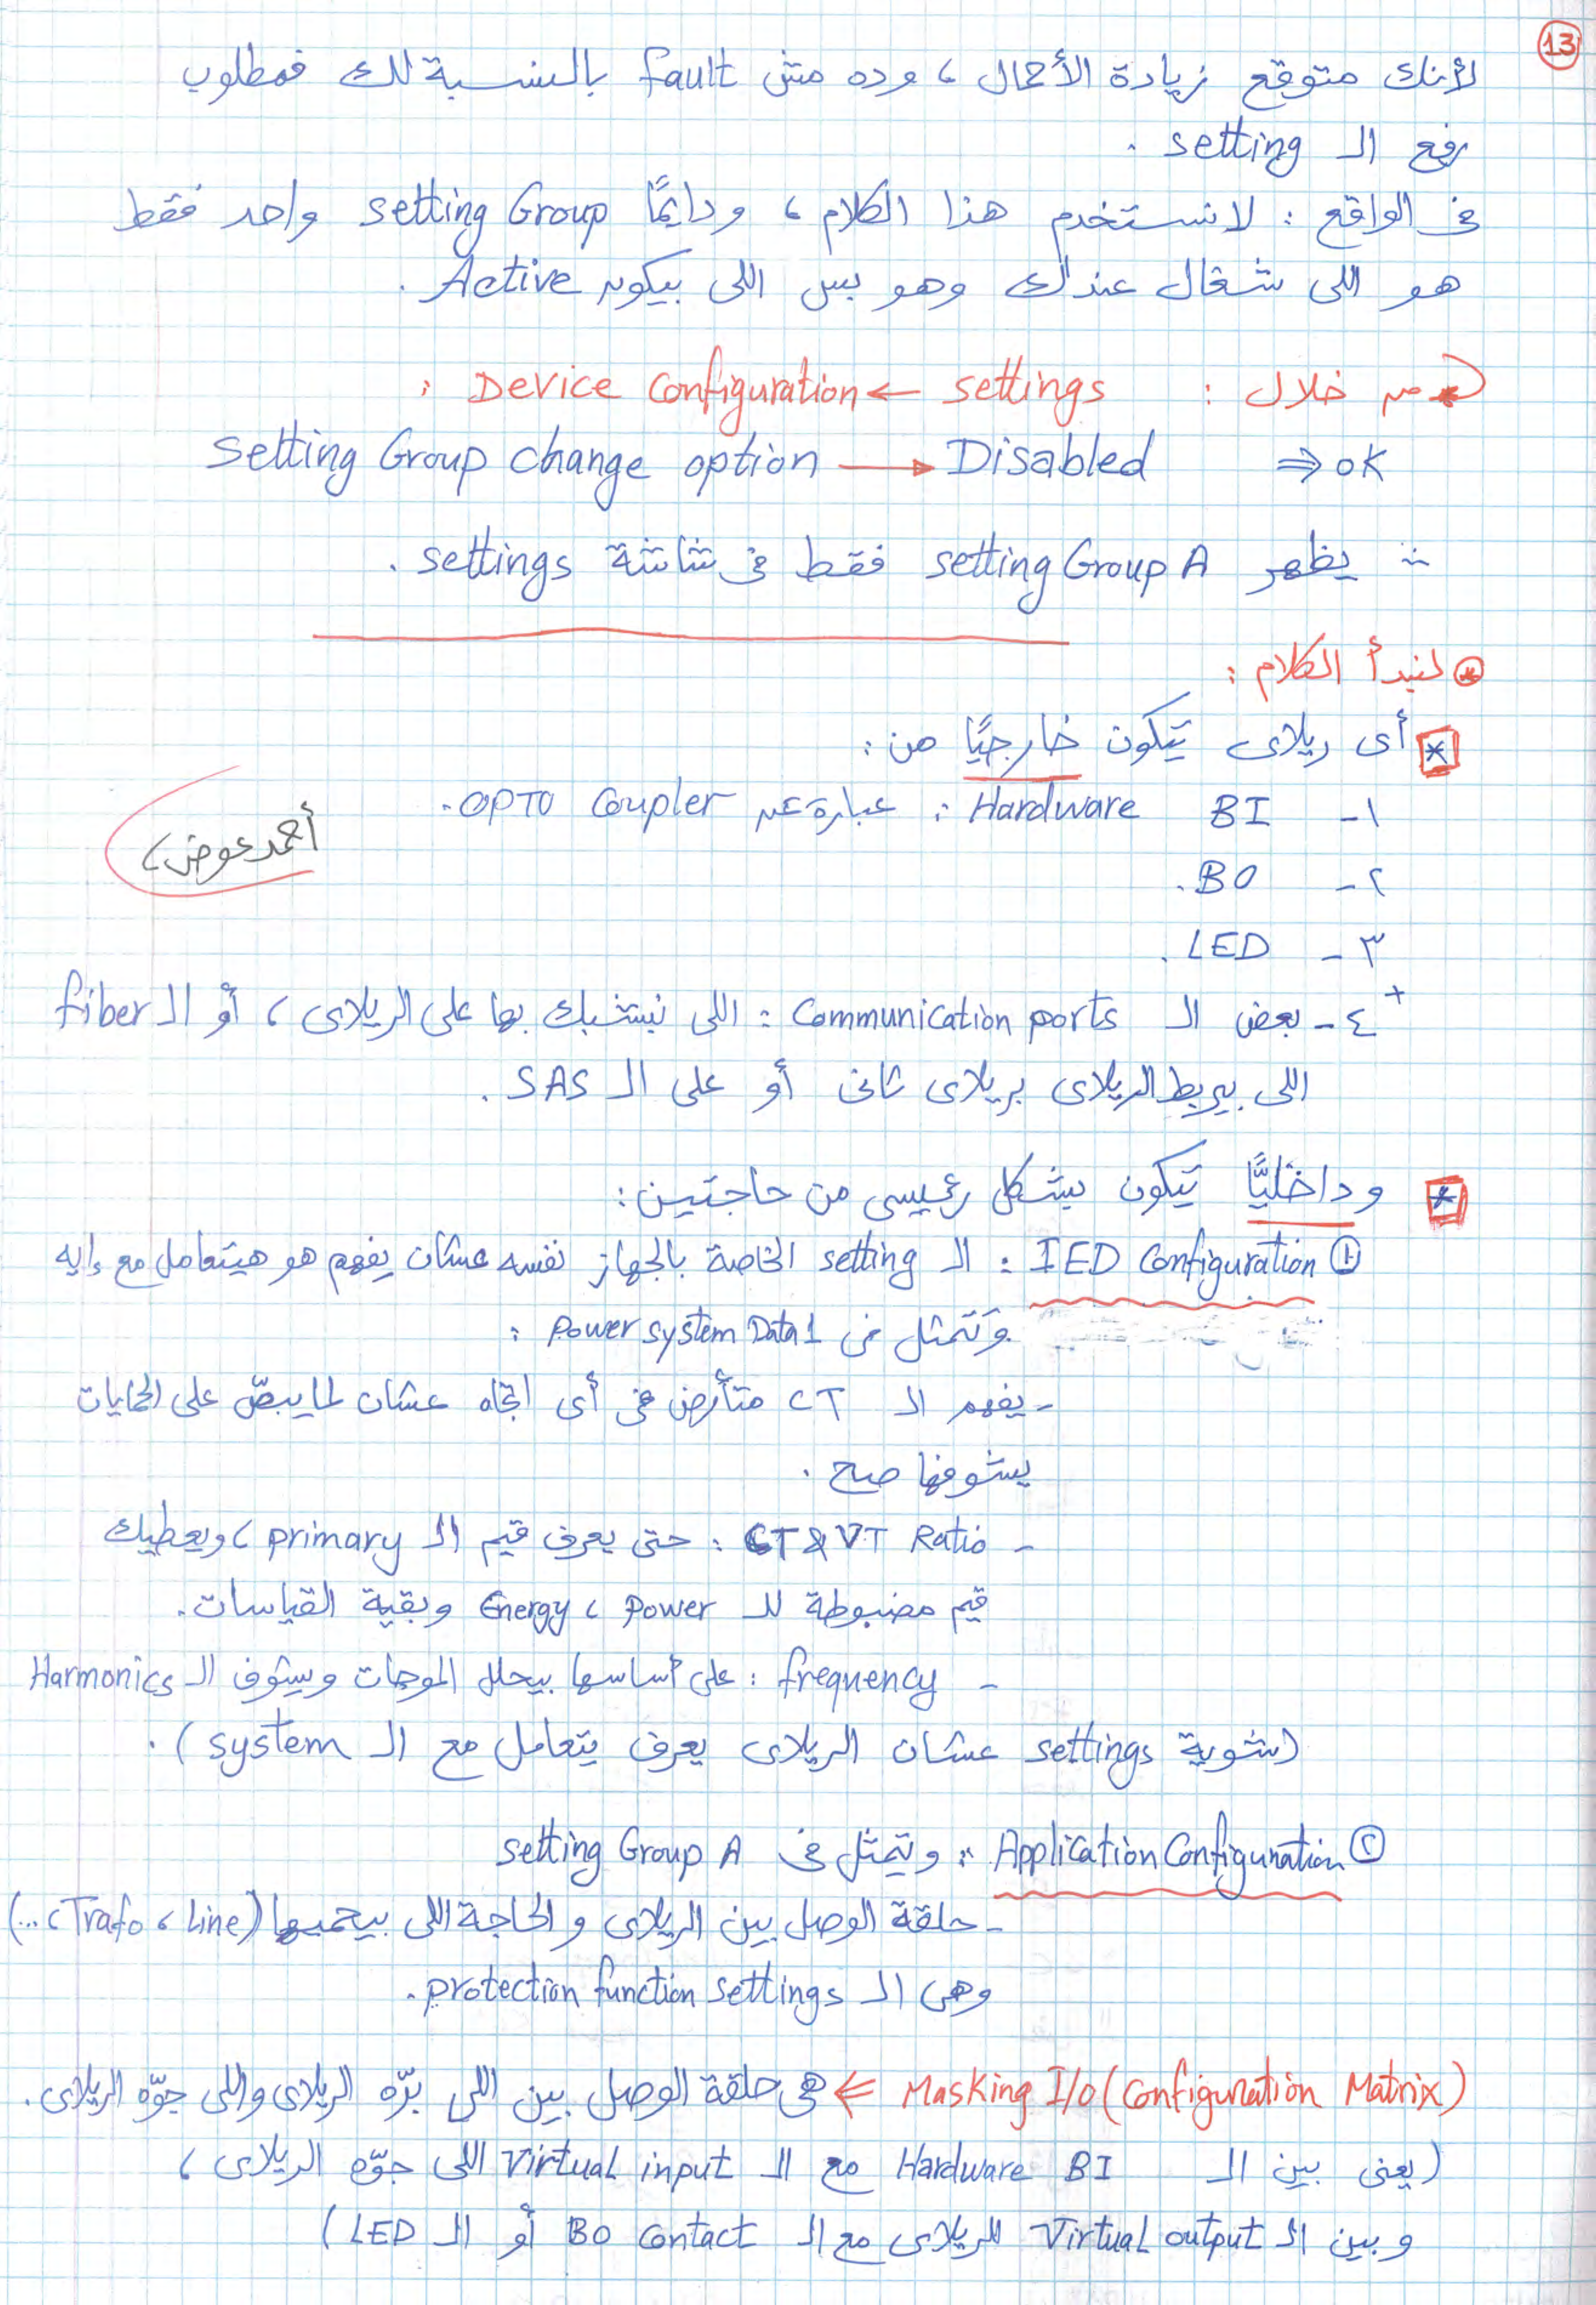 13
لأنك متوقع زيادة الأحمال ، وده مش fault بالنسبة لك فمطلوب
رفع الـ setting .
فى الواقع : لا نستخدم هذا الكلام ، ودايمًا setting Group واحد فقط
هو اللى شغال عندك وهو بس اللى بيكون Active .
من خلال : settings ← Device Configuration :
Setting Group change option → Disabled ⇒ ok
∴ يظهر setting Group A فقط فى شاشة settings .
⊛ لنبدأ الكلام :
* أى ريلاى تيكون خارجيًا من :
١- BI Hardware : عبارة عن OPTO Coupler .
٢- BO .
أحمد عوض ،
٣- LED .
+ ٤- بعض الـ Communication ports : اللى نبتشبك بها على الريلاى ، أو الـ fiber
اللى بيربط الريلاى بريلاى تانى أو على الـ SAS .
* وداخليًّا تيكون بشكل رئيسى من حاجتين :
① IED Configuration : الـ setting الخاصة بالجهاز نفسه عشان يفهم هو هيتعامل مع إيه
وتتمثل فى Power system Data 1 :
- يفهم الـ CT متأرض فى أى اتجاه عشان لما يبصّ على الحمايات
يشوفها صح .
- CT & VT Ratio : حتى يعرف قيم الـ primary ، ويعطيك
قيم مضبوطة للـ Power ، Energy وبقية القياسات .
- frequency : على أساسها بيحلل الموجات ويشوف الـ Harmonics
(شوية settings عشان الريلاى يعرف يتعامل مع الـ system) .
② Application Configuration : ويتمثل فى setting Group A
- حلقة الوصل بين الريلاى والحاجة اللى بيحميها (Line ، Trafo ، ...)
وهى الـ protection function settings .
Masking I/O (Configuration Matrix) ⇐ هى حلقة الوصل بين اللى برّه الريلاى واللى جوّه الريلاى .
(يعنى بين الـ Hardware BI مع الـ Virtual input اللى جوّه الريلاى ،
وبين الـ Virtual output للريلاى مع الـ BO Contact أو الـ LED)